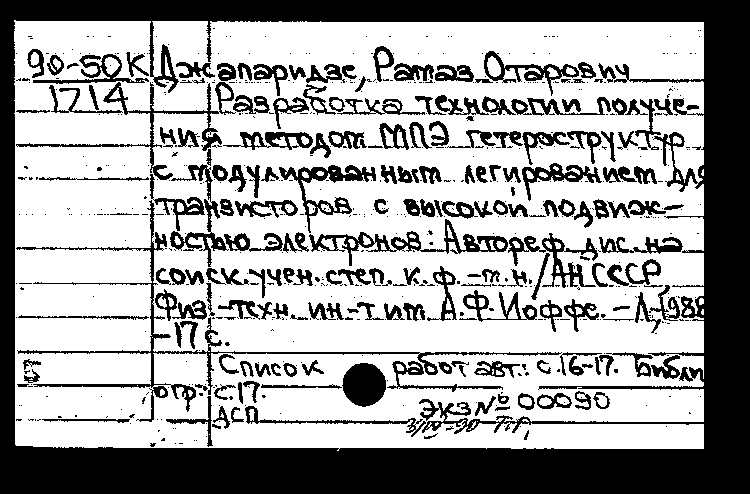 90-50К Джапаридзе, Рамаз Отарович
1714 Разработка технологии получе-
ния методом МПЭ гетероструктур
с модулированным легированием для
транзисторов с высокой подвиж-
ностью электронов: Автореф. дис. на
соиск. учен. степ. к. ф.-м. н. / АН СССР,
Физ.-техн. ин-т им. А.Ф. Иоффе. - Л., 1988
-17 с.
Список работ авт.: с.16-17. Библи
огр: с.17.
ДСП экз № 00090